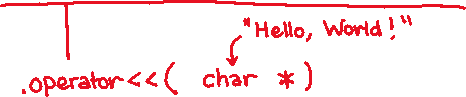 "Hello, World!"
.operator<<( char *)